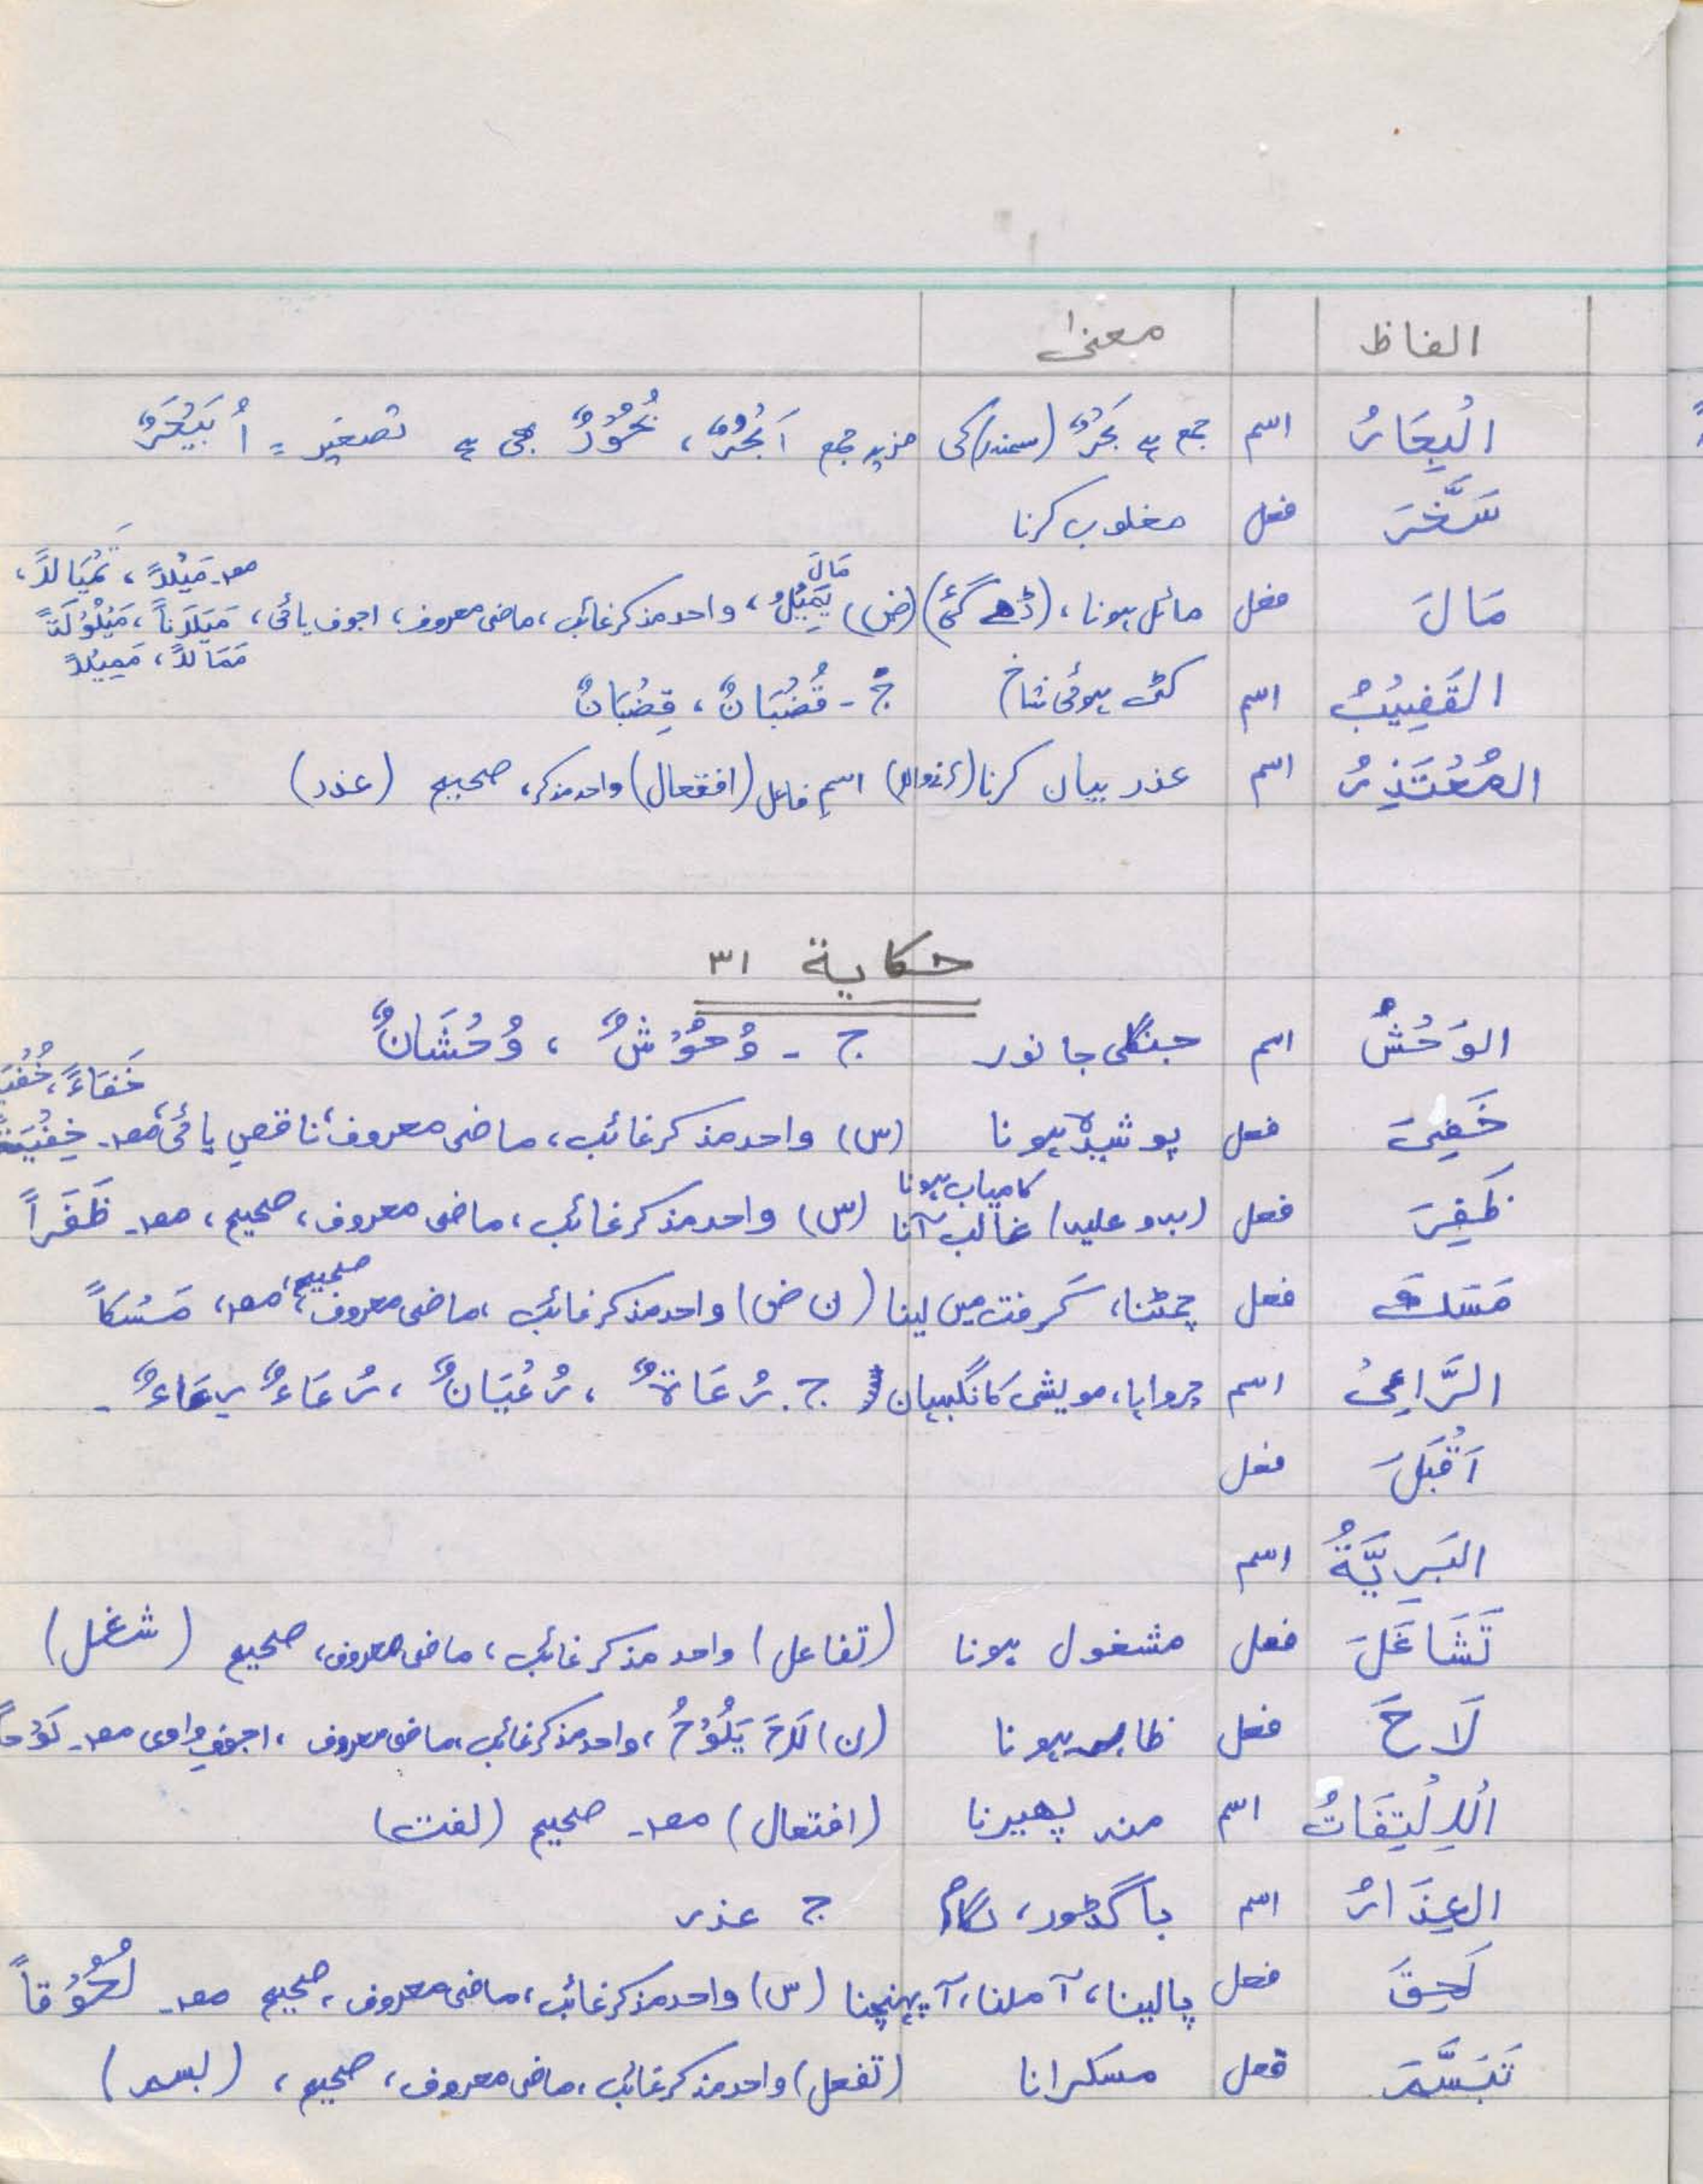 الفاظ معنیٰ
الْبِحَارُ اسم جمع ہے بَحْرٌ (سمندر) کی مزید جمع اَبْحُرٌ، بُحُوْرٌ بھی ہے تصغیر = اُبَيْحَرٌ
سَخَّرَ فعل مغلوب کرنا
مصد۔ مَيْلاً، تَمْيَالاً،
مَالَ
مَالَ فعل مائل ہونا، (ڈھے گئی) (ض) يَمِيْلُ، واحد مذکر غائب، ماضی معروف، اجوف یائی، مَيَلَاناً، مَيْلُوْلَةً
مَمَالاً، مَمِيْلاً
القَضِيْبُ اسم کٹی ہوئی شاخ ج - قُضْبَانٌ، قِضْبَانٌ
المُعْتَذِرُ اسم عذر بیان کرنا (کرنے والا) اسمِ فاعل (افتعال) واحد مذکر، صحیح (عذر)
حكاية ٣١
الوَحْشُ اسم جنگلی جانور ج - وُحُوْشٌ، وُحْشَانٌ
خَفَاءً،
خَفِيَ فعل پوشیدہ ہونا (س) واحد مذکر غائب، ماضی معروف، ناقص یائی، مصد۔ خِفْيَةً
کامیاب ہونا
ظَفِرَ فعل (بہ و علیہ) غالب آنا (س) واحد مذکر غائب، ماضی معروف، صحیح، مصد۔ ظَفَراً
صحیح،
مَسَكَ فعل چمٹنا، گرفت میں لینا (ن ض) واحد مذکر غائب، ماضی معروف، مصد، مَسْكاً
الرَّاعِيْ اسم چرواہا، مویشی کا نگہبان ج۔ رُعَاةٌ، رُعْيَانٌ، رُعَاءٌ رِعَاءٌ۔
اَقْبَلَ فعل
البَرِيَّةُ اسم
تَشَاغَلَ فعل مشغول ہونا (تفاعل) واحد مذکر غائب، ماضی معروف، صحیح (شغل)
لَاحَ فعل ظاہر ہونا (ن) لَاحَ يَلُوْحُ، واحد مذکر غائب، ماضی معروف، اجوف واوی مصد۔ لَوْحاً
اَلْاِلْتِفَاتُ اسم منہ پھیرنا (افتعال) مصد۔ صحیح (لفت)
العِذَارُ اسم باگ ڈور، لگام ج عذر
لَحِقَ فعل پالینا، آملنا، آپہنچنا (س) واحد مذکر غائب، ماضی معروف، صحیح مصد۔ لُحُوْقاً
تَبَسَّمَ فعل مسکرانا (تفعل) واحد مذکر غائب، ماضی معروف، صحیح، (بسم)